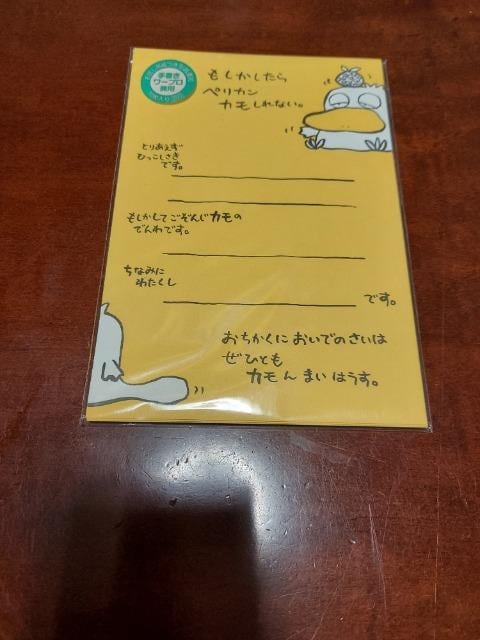 手書き
ワープロ
兼用
もしかしたら
ペリカン
カモしれない。
とりあえず
ひっこしさき
です。
もしかしてごぞんじカモの
でんわです。
ちなみに
わたくし
です。
おちかくにおいでのさいは
ぜひとも
カモんまいはうす。